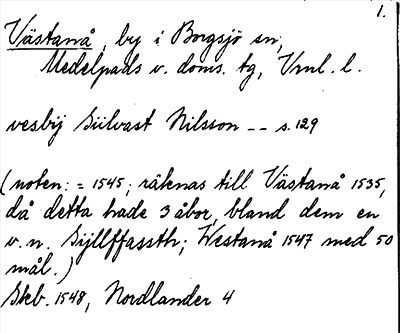 1.
Västanå, by i Borgsjö sn,
Medelpads v. doms. tg, Vrnl. l.
vesbij Siilvast Nilsson -- s. 129
(noten: = 1545; räknas till Västanå 1535,
då detta hade 3 åbor, bland dem en
v. n. Sijllffassth; Westanå 1547 med 50
mål.)
Skb. 1548, Nordlander 4